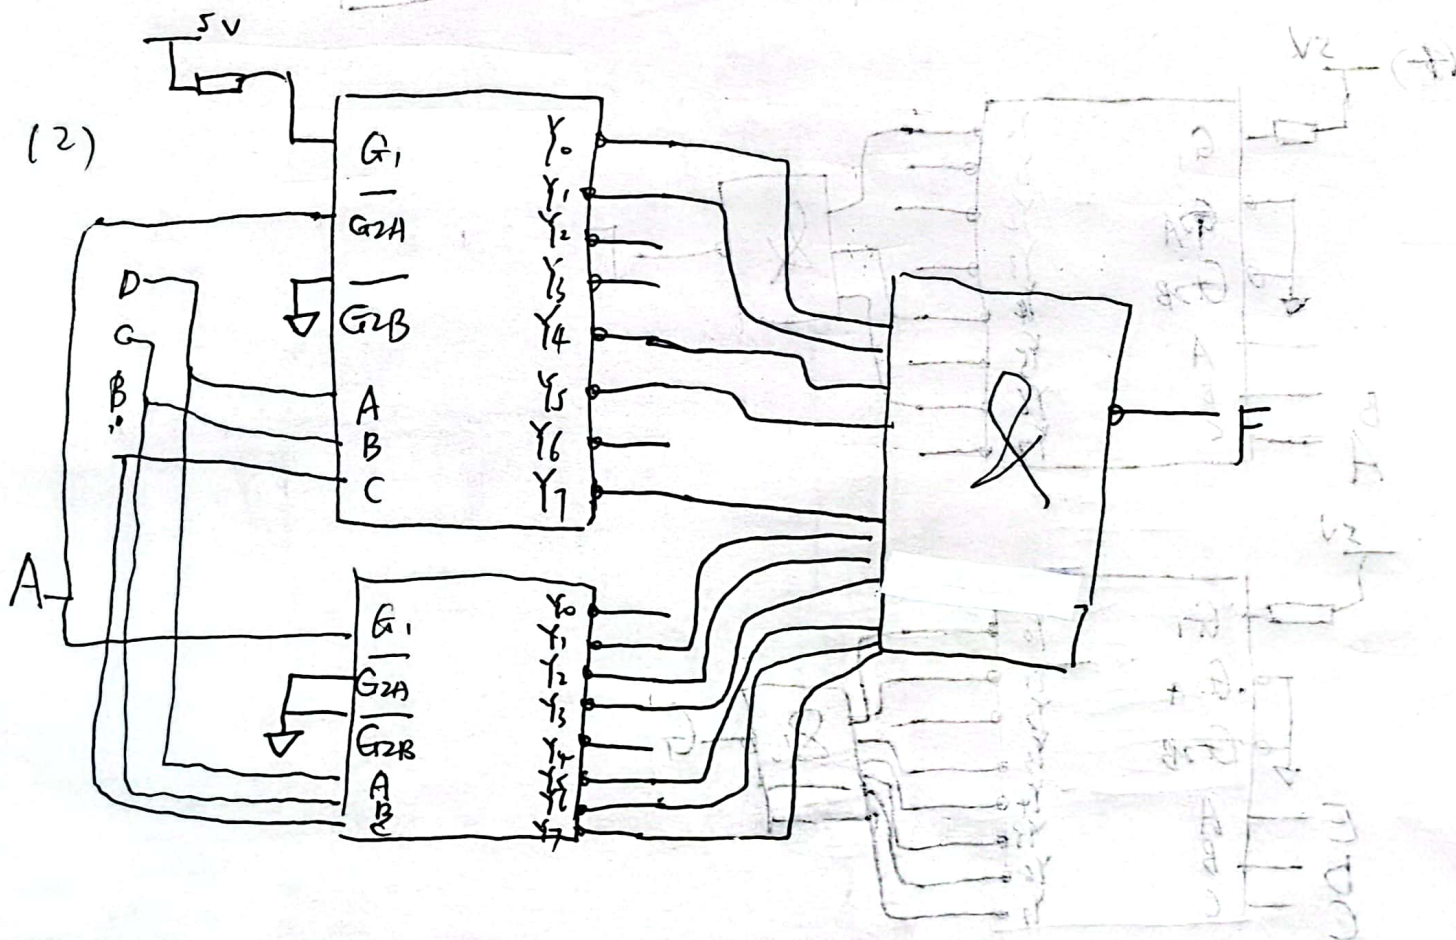 5V
(2)
G1 Y0
G2A Y1
Y2
G2B Y3
Y4
A Y5
B Y6
C Y7
D
C
B
A
&
F
G1 Y0
Y1
G2A Y2
Y3
G2B Y4
A Y5
B Y6
C Y7